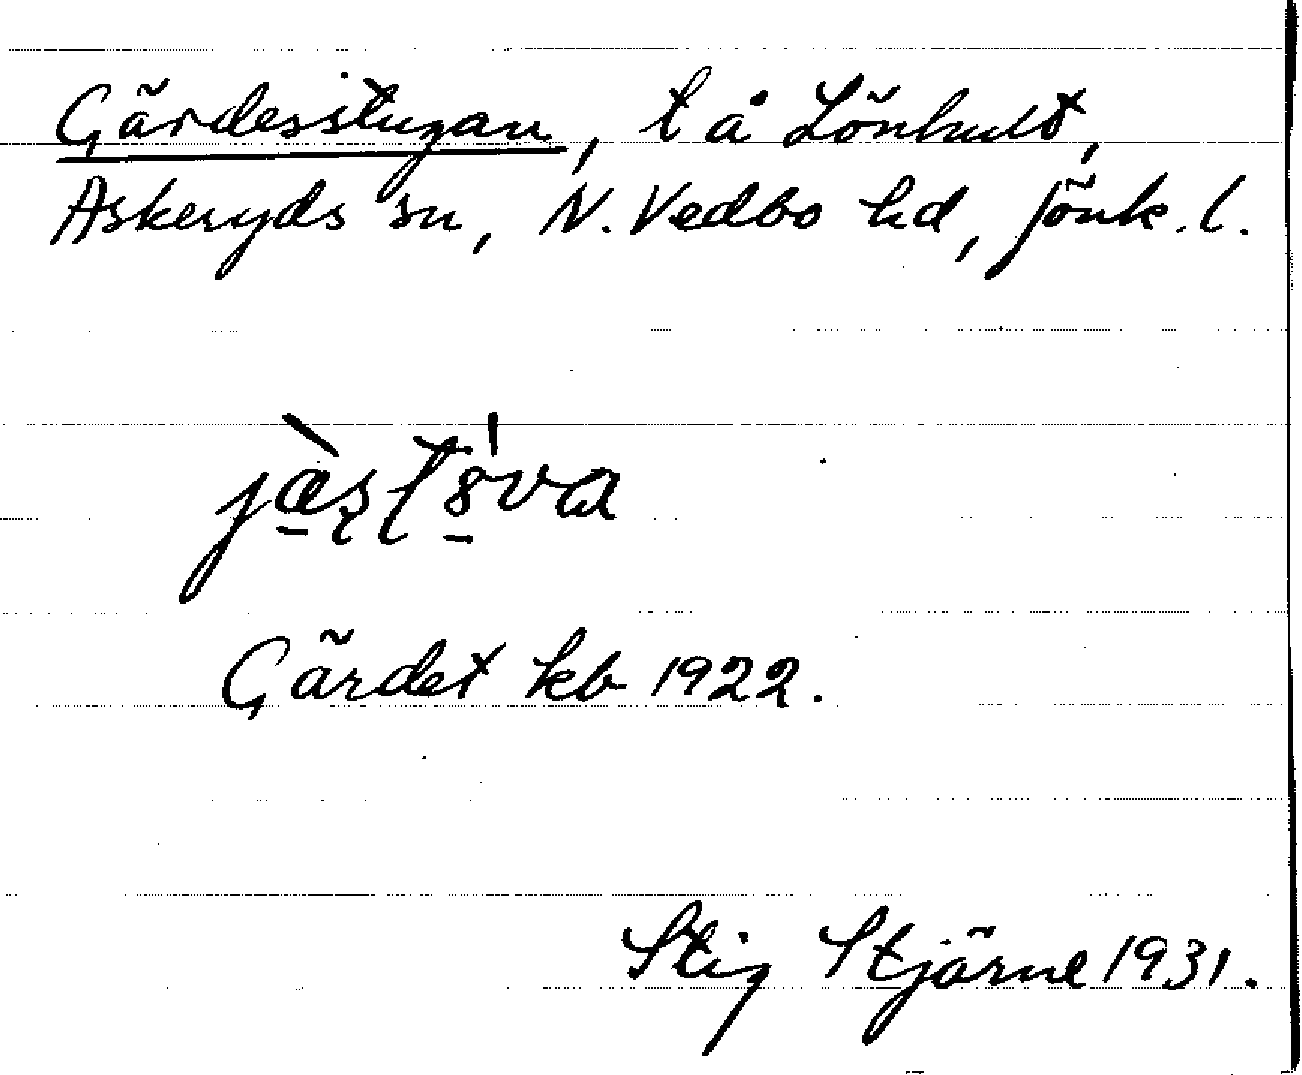 Gärdesstugan, t å Lönhult,
Askeryds sn, N. Vedbo hd, Jönk. l.
Gärdet kb 1922.
Stig Stjärne 1931.